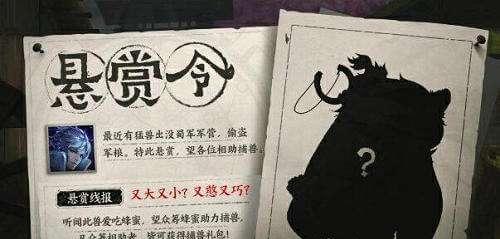 悬赏令
最近有猛兽出没蜀军军营，偷盗
军粮。特此悬赏，望各位相助捕兽。
悬赏线报
又大又小？又憨又巧？
听闻此兽爱吃蜂蜜，望众筹蜂蜜助力捕兽，
又众筹相助者，皆可获捕兽礼包！
?